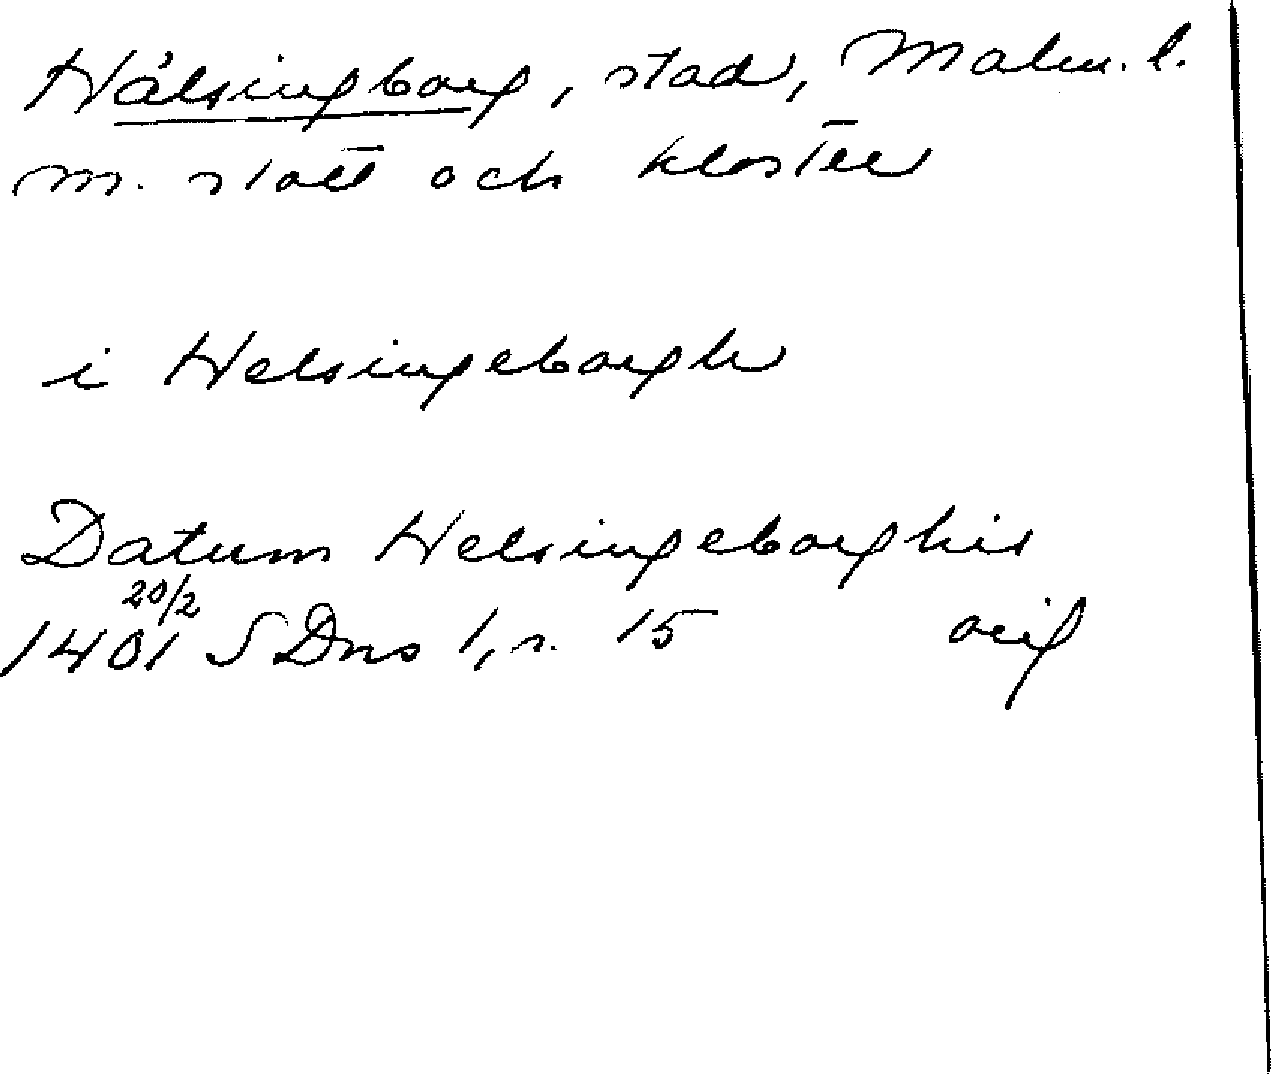 Hälsingborg, stad, Malm. l.
m. slott och kloster
i Helsingeborgh
Datum Helsingeborghis
20/2
1401 SDns 1, s. 15 orig